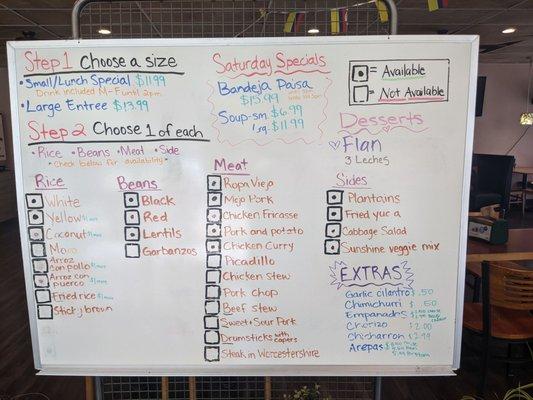 Step 1 Choose a size
• Small/Lunch Special $11.99
Drink included M-F until 2pm
• Large Entree $13.99
Step 2 Choose 1 of each
• Rice • Beans • Meat • Side
• Check below for availability •
Rice
White
Yellow
Coconut
Moro
Arroz con pollo
Arroz con puerco
Fried rice
Sticky brown
Beans
Black
Red
Lentils
Garbanzos
Meat
Ropa Vieja
Mojo Pork
Chicken Fricasse
Pork and potato
Chicken Curry
Picadillo
Chicken stew
Pork chop
Beef stew
Sweet + Sour Pork
Drumsticks with capers
Steak in Worcestershire
Saturday Specials
Bandeja Paisa
$15.99
Soup - sm $6.99
Lrg. $11.99
= Available
= Not Available
Desserts
Flan
3 Leches
Sides
Plantains
Fried yuca
Cabbage Salad
Sunshine veggie mix
EXTRAS
Garlic cilantro $.50
Chimichurri $.50
Empanadas
Chorizo $2.00
Chicharron $2.99
Arepas